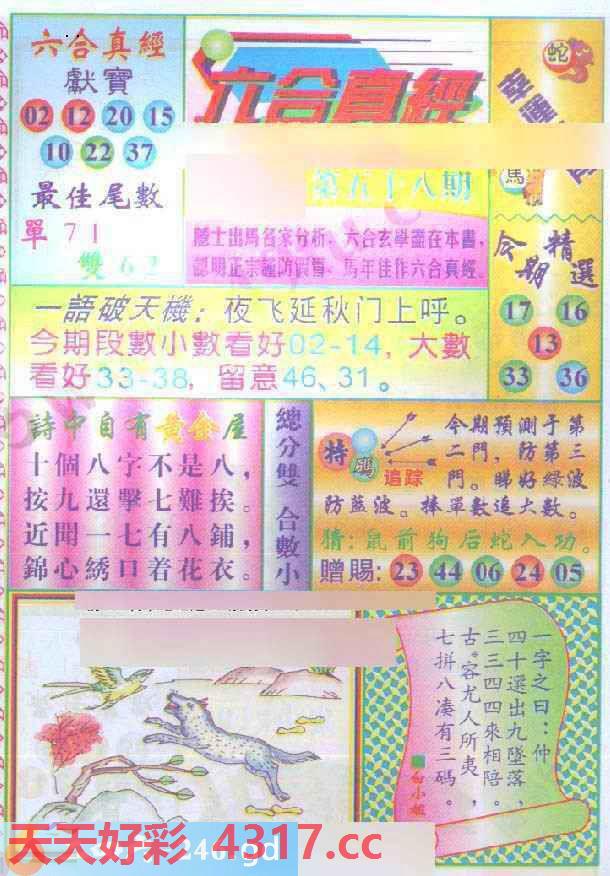 六合真經
獻寶
02 12 20 15
10 22 37
最佳尾數
單 71
雙 62
六合真經
第五十八期
隱士出馬名家分析、六合玄學盡在本書，
認明正宗謹防假冒、馬年佳作六合真經。
蛇
馬
今期精選
17 16
13
33 36
一語破天機：夜飞延秋门上呼。
今期段數小數看好02-14，大數
看好33-38，留意46、31。
詩中自有黃金屋
十個八字不是八，
按九還擊七難挨。
近聞一七有八鋪，
錦心綉口着花衣。
總分雙 合數小
特碼
追踪
今期預測于第
二門，防第三
門。睇好綠波
防藍波。捧單數追大數。
猜：鼠前狗后蛇入功。
赠賜：23 44 06 24 05
一字之曰：仲
四十選出九墜落，
三三四四來相陪。
古。容尤人所夷，
七拼八凑有三碼。
白小姐
天天好彩 4317.cc
246.gd